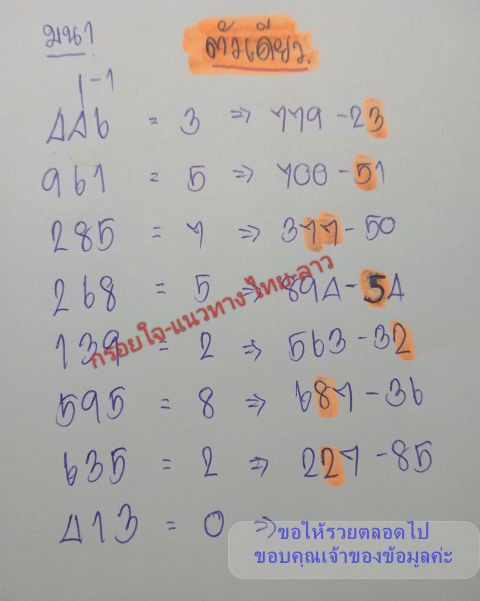 มน1
ตัวเดียว.
1-1
446 = 3 => 779-23
961 = 5 => 700-51
285 = 7 => 377-50
268 = 5 => 894-54
กรอยใจ-แนวทาง-ไทย-ลาว
139 = 2 => 563-32
595 = 8 => 687-36
635 = 2 => 227-85
413 = 0 =>
ขอให้รวยตลอดไป
ขอบคุณเจ้าของข้อมูลค่ะ